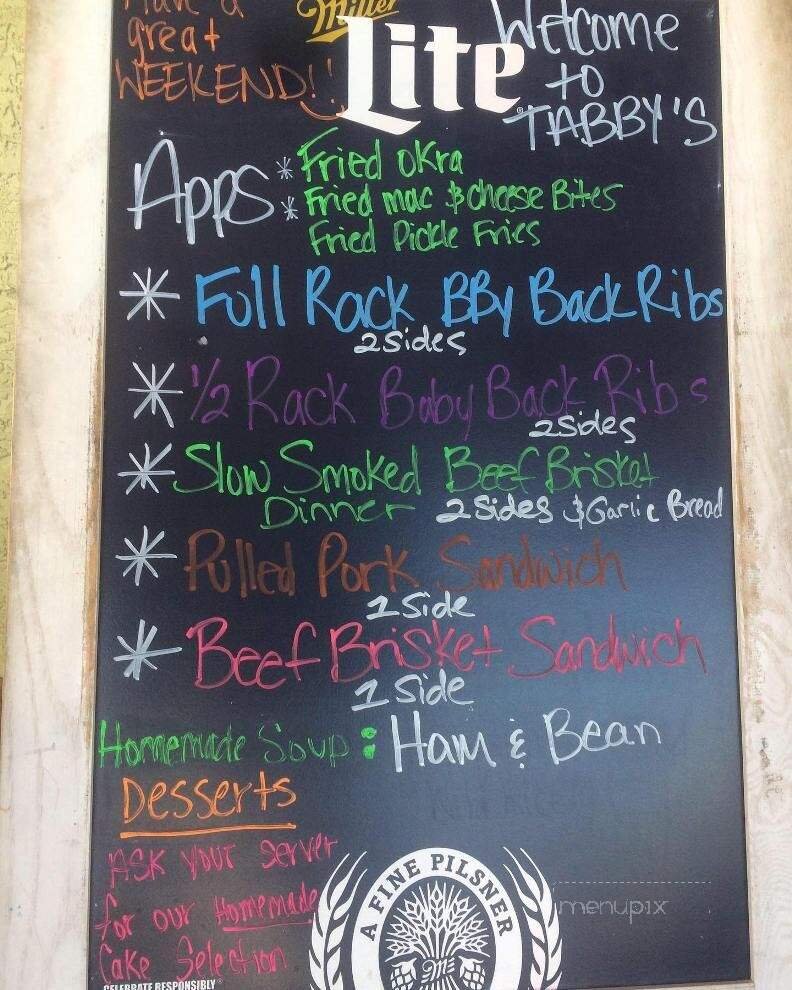 Have a
great
WEEKEND!!
Miller
Lite
Welcome
to
TABBY'S
Apps * Fried okra
* Fried mac & cheese Bites
Fried Pickle Fries
* Full Rack BBy Back Ribs
2 sides
* 1/2 Rack Baby Back Ribs
2 sides
* Slow Smoked Beef Brisket
Dinner 2 Sides & Garlic Bread
* Pulled Pork Sandwich
1 Side
* Beef Brisket Sandwich
1 Side
Homemade Soup: Ham & Bean
Desserts
ASK your server
for our Homemade
Cake Selection
A FINE PILSNER
menupix
CELEBRATE RESPONSIBLY®